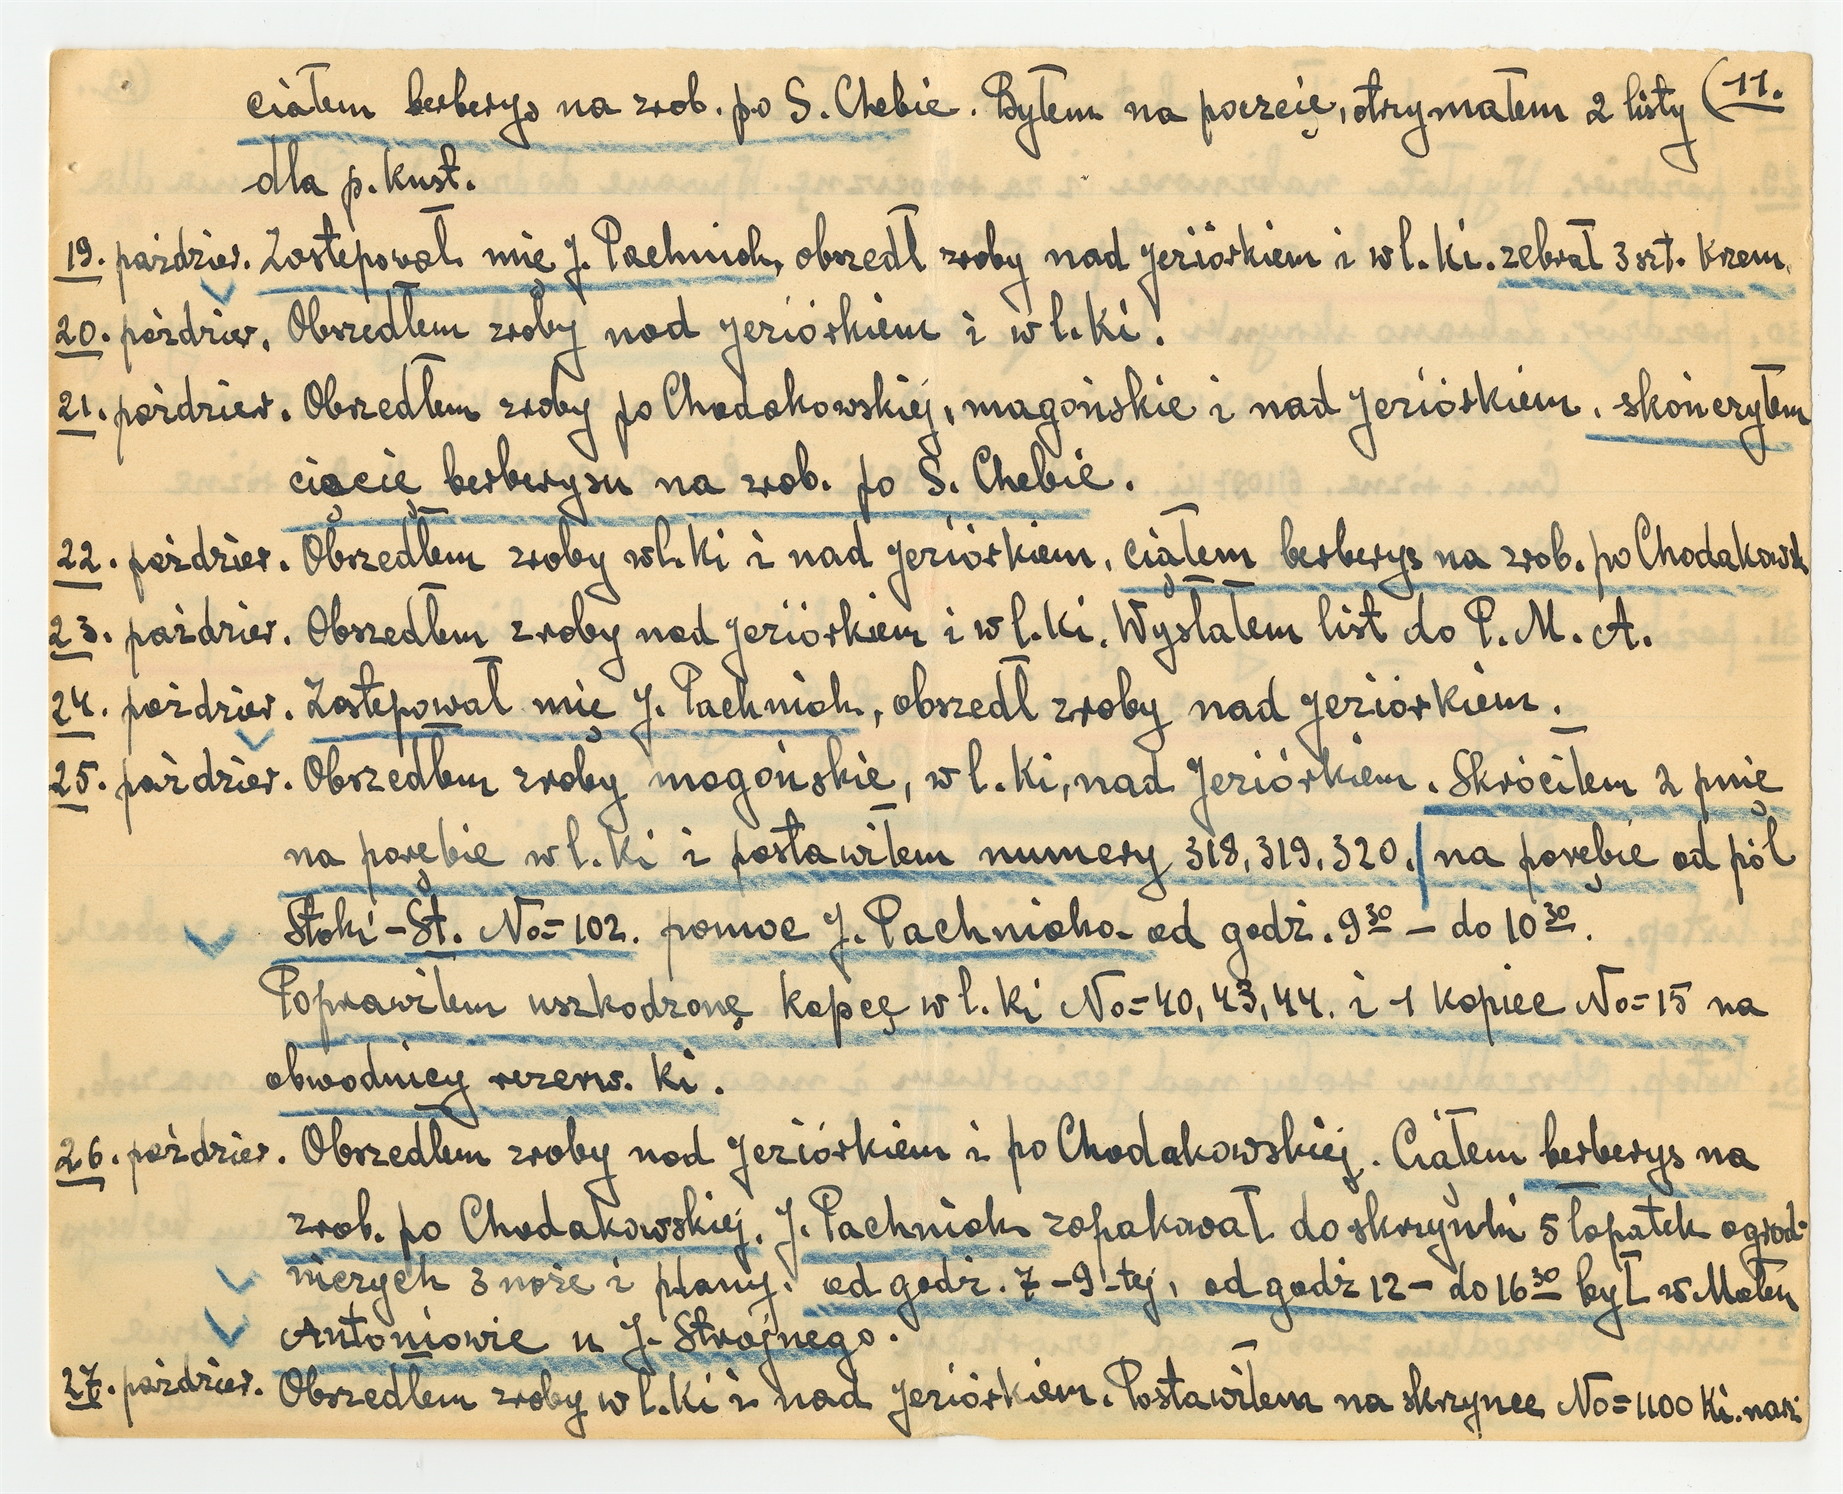 ciąłem berberys na zrob. po S. Chebie. Byłem na poczcię, otrymałem 2 listy (11.
dla p. kust.
19. paździer. Zastępował mię J. Pachniak, obszedł zroby nad Jeziórkiem i w l. Ki. zebrał 3 szt. krzem.
20. paździer. Obszedłem zroby nad Jeziórkiem i w l. Ki.
21. paździer. Obszedłem zroby po Chodakowskiej, magońskie i nad Jeziórkiem, skończyłem
cięcię berberysu na zrob. po S. Chebie.
22. paździer. Obszedłem zroby w l. Ki i nad Jeziórkiem, ciąłem berberys na zrob. po Chodakowsk
23. paździer. Obszedłem zroby nad Jeziórkiem i w l. Ki. Wysłałem list do P. M. A.
24. paździer. Zastępował mię J. Pachniak, obszedł zroby nad Jeziórkiem.
25. paździer. Obszedłem zroby magońskie, w l. Ki, nad Jeziórkiem. Skróciłem 2 pnię
na porębie w l. Ki i postawiłem numery 318, 319, 320. / na porębie od pól
Stoki-St. No=102. pomoc J. Pachniaka od godz. 9 30 - do 10 30.
Poprawiłem uszkodzonę kopcę w l. Ki No=40, 43, 44. i 1 kopiec No=15 na
obwodnicy rezerw. Ki.
26. paździer. Obszedłem zroby nad Jeziórkiem i po Chodakowskiej. Ciąłem berberys na
zrob. po Chodakowskiej. J. Pachniak zapakował do skrzynki 5 łopatek ogrod-
niczych 3 noże i plany. od godz. 7-9-tej, od godz 12 - do 16 30 był w Małem
Antoniowie u J. Strojnego.
27. paździer. Obszedłem zroby w l. Ki i nad Jeziórkiem. Postawiłem na skrzynce No=1100 Ki.